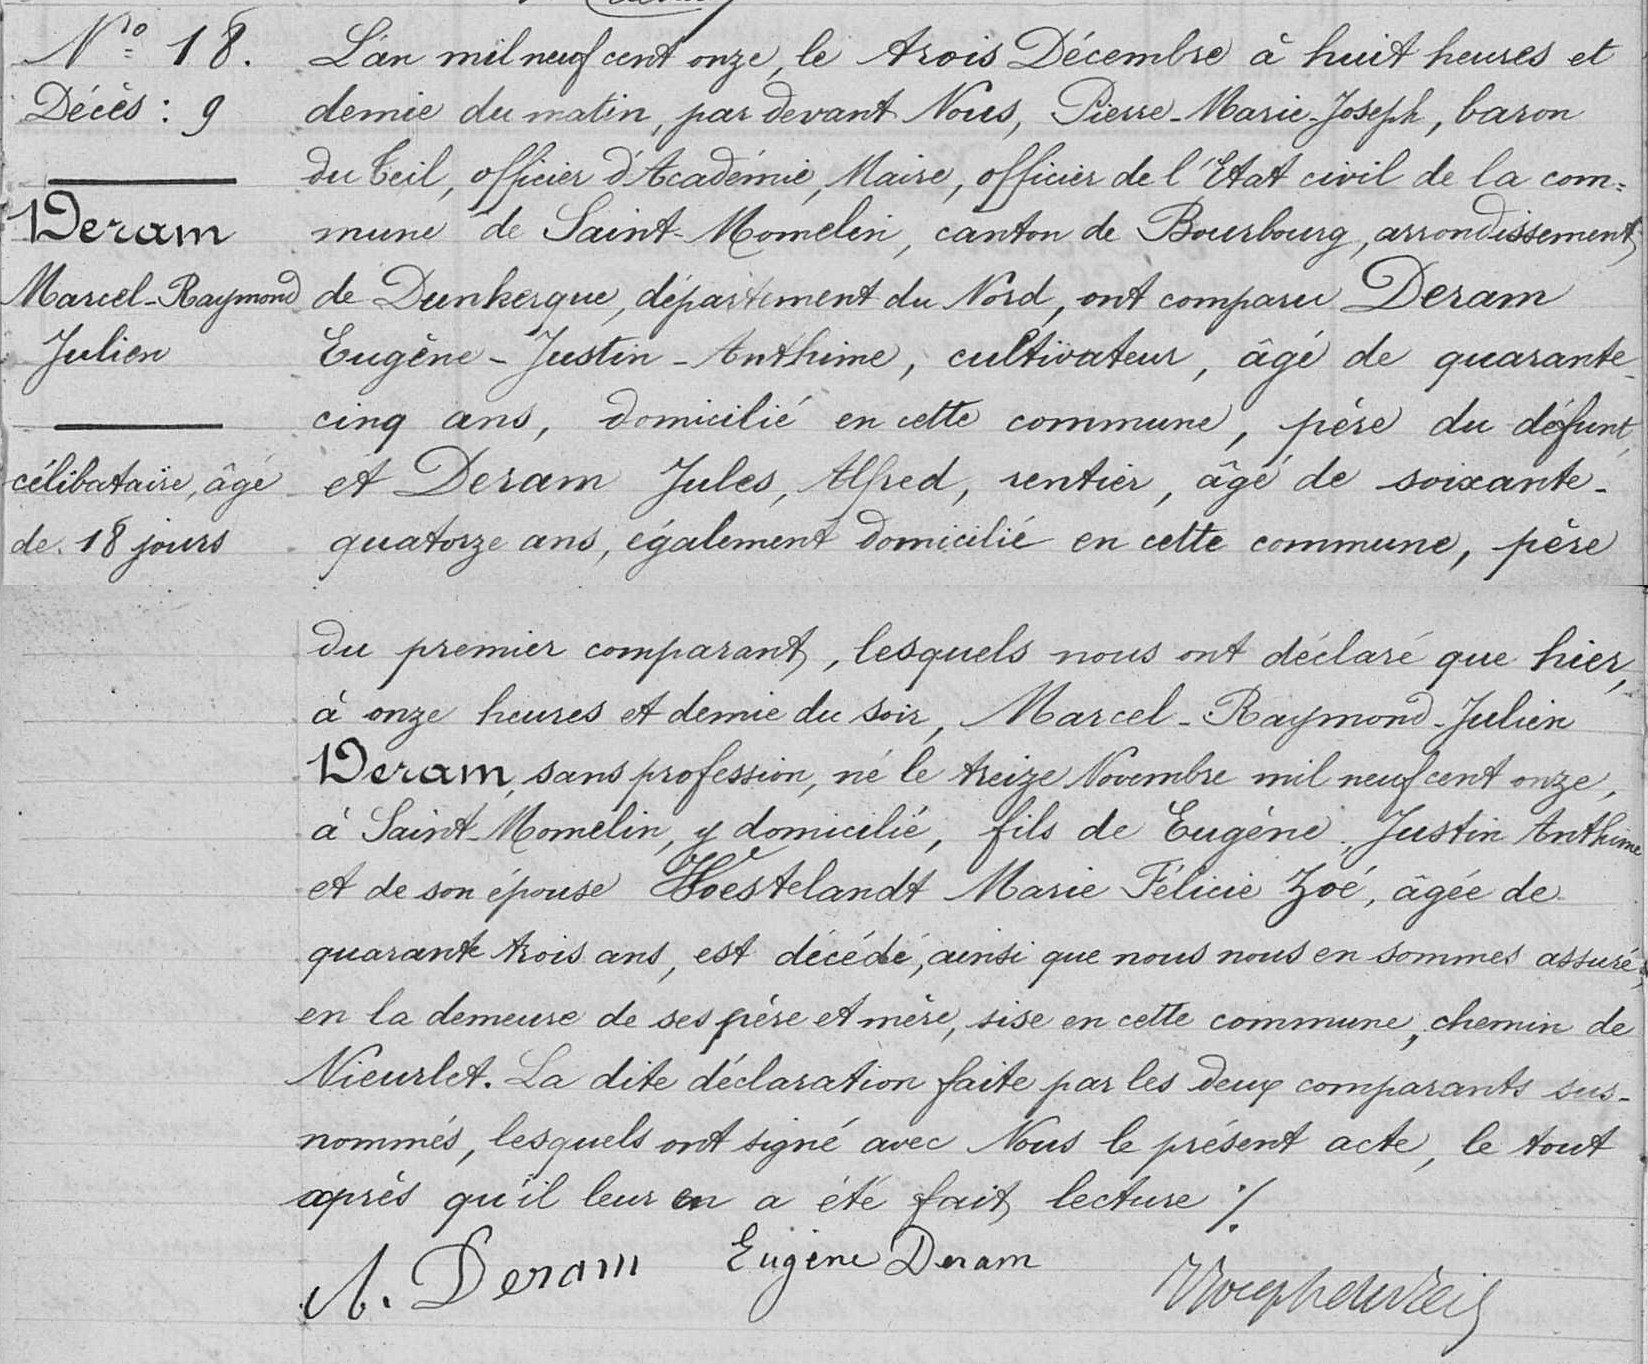 Nº 18.
Décès : 9
Deram
Marcel-Raymond
Julien
célibataire, âgé
de 18 jours
L'an mil neuf cent onze, le trois Décembre à huit heures et
demie du matin, par devant Nous, Pierre-Marie-Joseph, baron
du Teil, officier d'Académie, Maire, officier de l'Etat civil de la com=
mune de Saint-Momelin, canton de Bourbourg, arrondissement
de Dunkerque, département du Nord, ont comparu Deram
Eugène-Justin-Anthime, cultivateur, âgé de quarante-
cinq ans, domicilié en cette commune, père du défunt,
et Deram Jules, Alfred, rentier, âgé de soixante-
quatorze ans, également domicilié en cette commune, père
du premier comparant, lesquels nous ont déclaré que hier,
à onze heures et demie du soir, Marcel-Raymond-Julien
Deram, sans profession, né le treize Novembre mil neuf cent onze,
à Saint-Momelin, y domicilié, fils de Eugène, Justin Anthime
et de son épouse Woestelandt Marie Félicie Zoé, âgée de
quarante trois ans, est décédé, ainsi que nous nous en sommes assuré,
en la demeure de ses père et mère, sise en cette commune, chemin de
Nieurlet. La dite déclaration faite par les deux comparants sus-
nommés, lesquels ont signé avec Nous le présent acte, le tout
après qu'il leur en a été fait lecture ./.
A. Deram Eugène Deram
Joseph du Teil